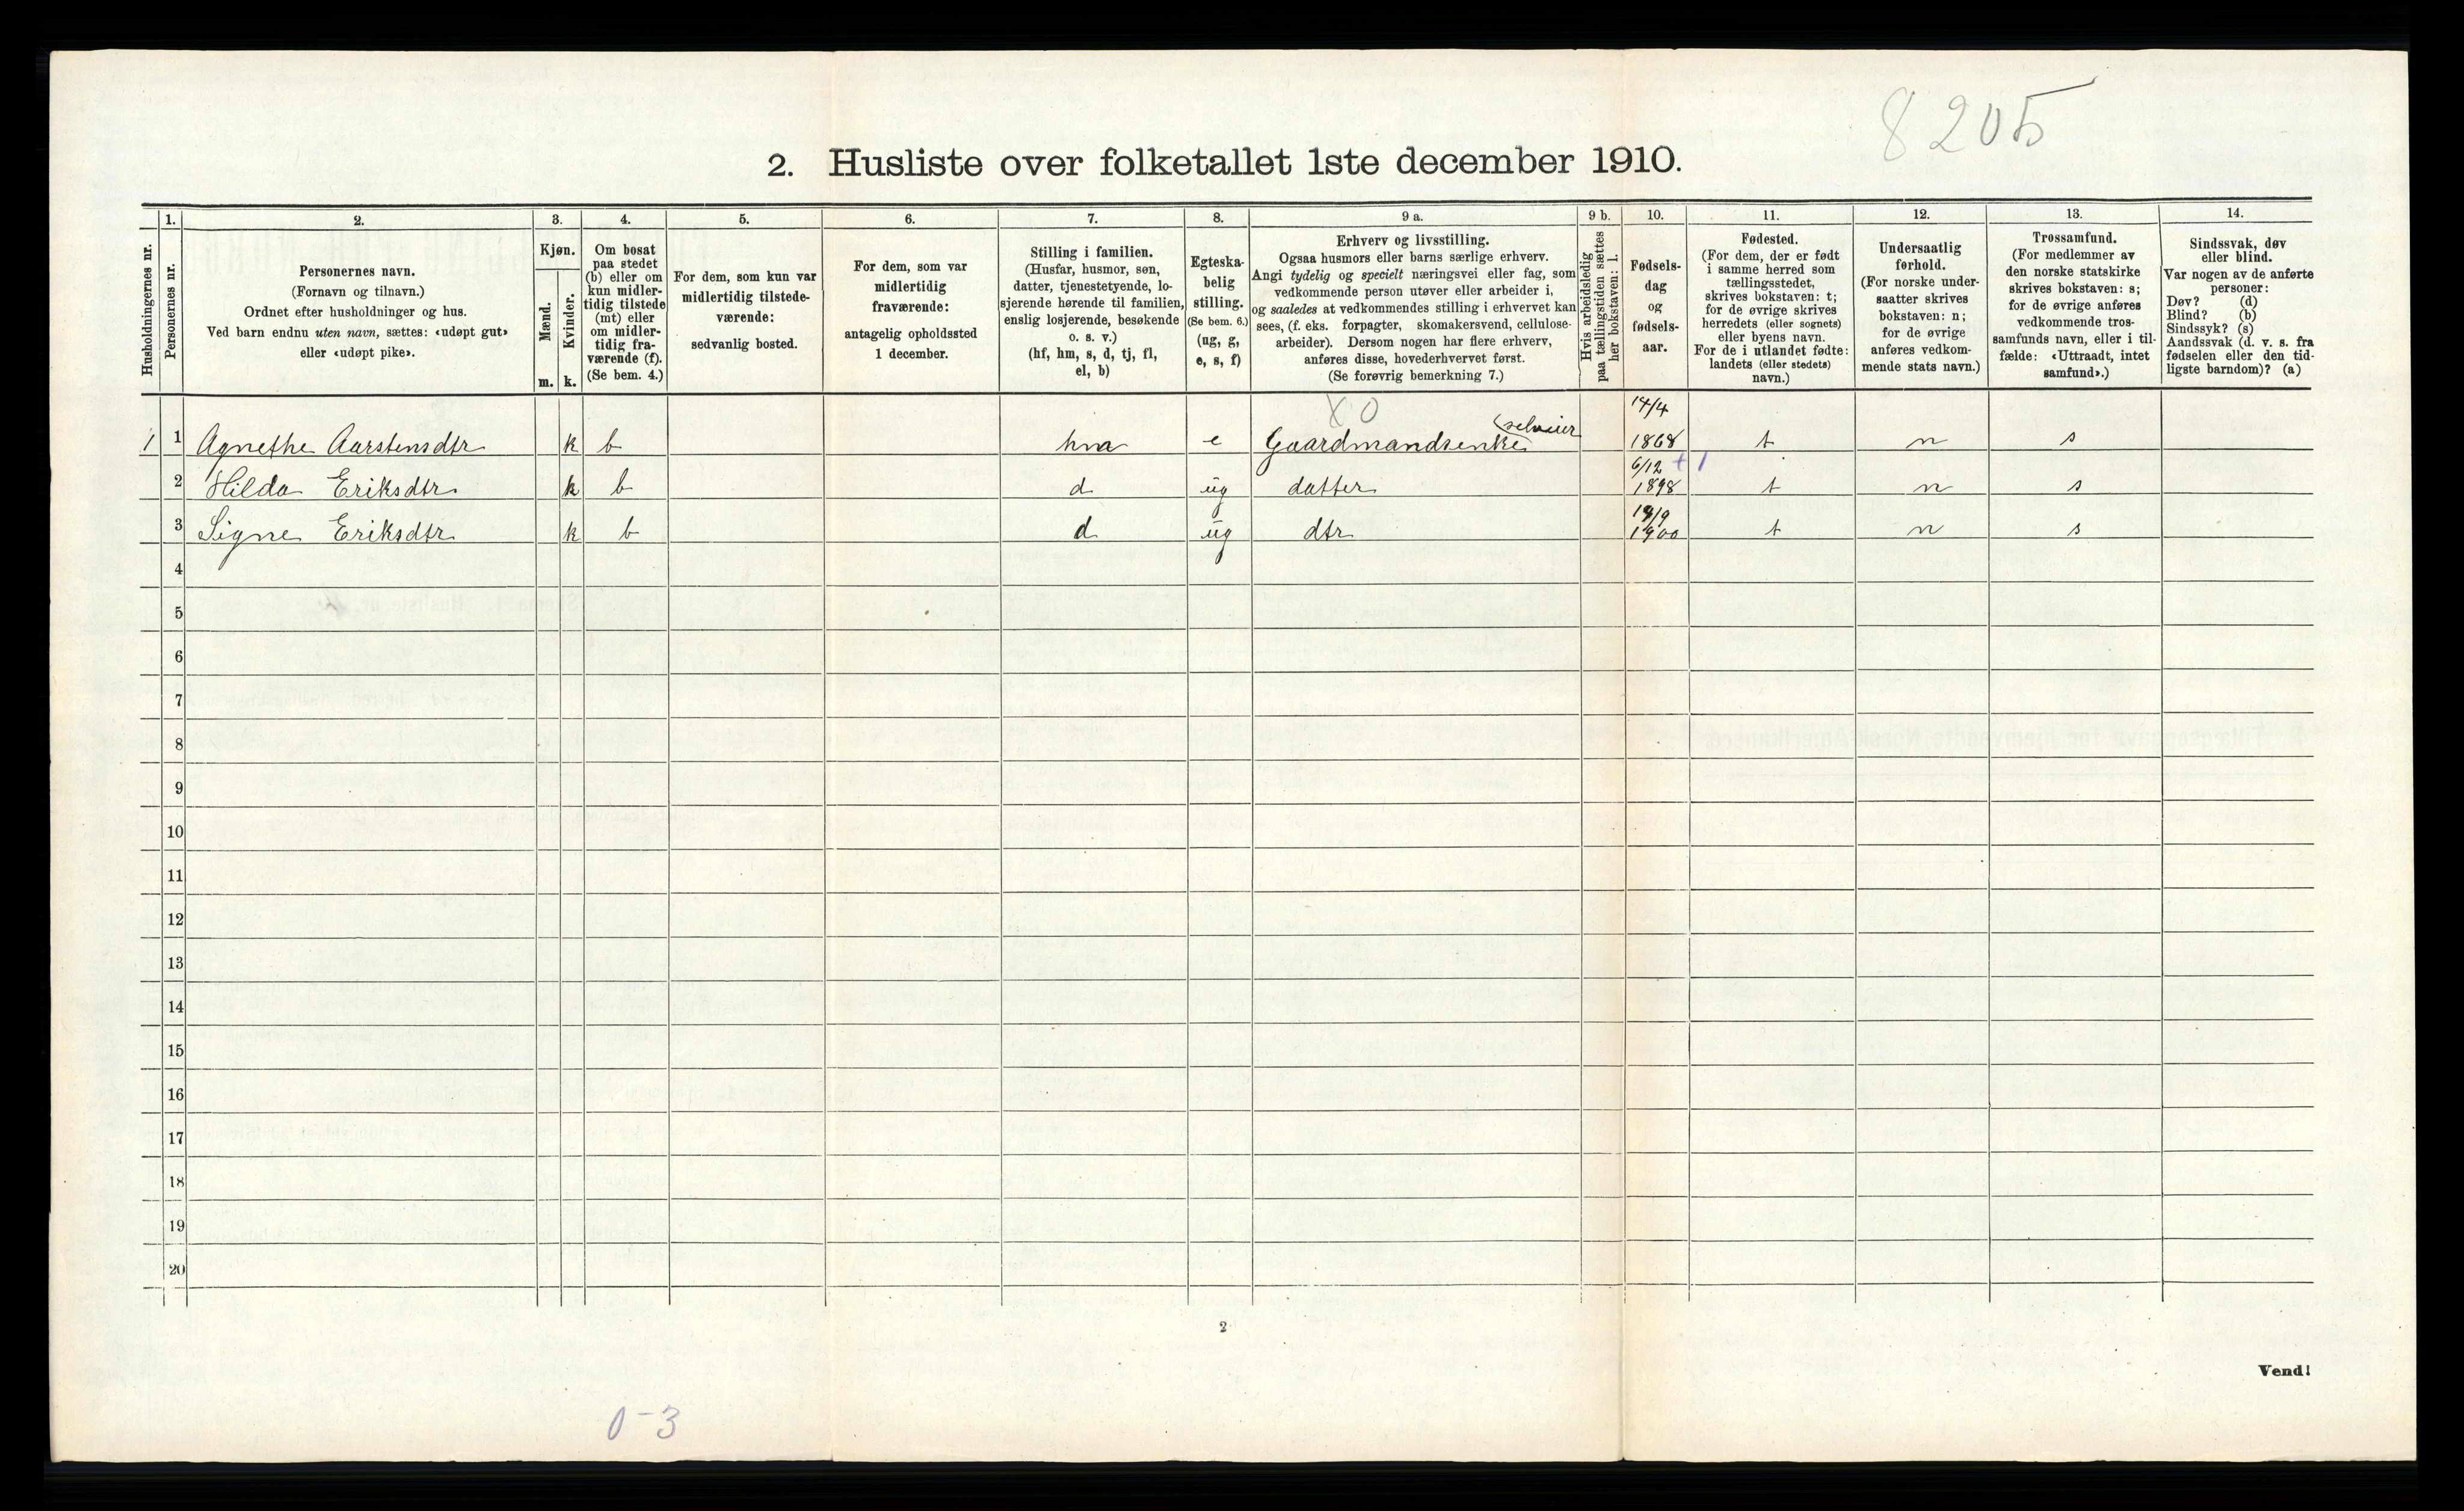 8205
2. Husliste over folketallet 1ste december 1910.
Husholdningernes nr.
1.
Personernes nr.
2.
Personernes navn.
(Fornavn og tilnavn.)
Ordnet efter husholdninger og hus.
Ved barn endnu uten navn, sættes: «udøpt gut»
eller «udøpt pike».
3.
Kjøn.
Mænd.
m.
Kvinder.
k.
4.
Om bosat
paa stedet
(b) eller om
kun midler-
tidig tilstede
(mt) eller
om midler-
tidig fra-
værende (f).
(Se bem. 4.)
5.
For dem, som kun var
midlertidig tilstede-
værende:
sedvanlig bosted.
6.
For dem, som var
midlertidig
fraværende:
antagelig opholdssted
1 december.
7.
Stilling i familien.
(Husfar, husmor, søn,
datter, tjenestetyende, lo-
sjerende hørende til familien,
enslig losjerende, besøkende
o. s. v.)
(hf, hm, s, d, tj, fl,
el, b)
8.
Egteska-
belig
stilling.
(Se bem. 6.)
(ug, g,
e, s, f)
9 a.
Erhverv og livsstilling.
Ogsaa husmors eller barns særlige erhverv.
Angi tydelig og specielt næringsvei eller fag, som
vedkommende person utøver eller arbeider i,
og saaledes at vedkommendes stilling i erhvervet kan
sees, (f. eks. forpagter, skomakersvend, cellulose-
arbeider). Dersom nogen har flere erhverv,
anføres disse, hovederhvervet først.
(Se forøvrig bemerkning 7.)
9 b.
Hvis arbeidsledig
paa tællingstiden sættes
her bokstaven: l.
10.
Fødsels-
dag
og
fødsels-
aar.
11.
Fødested.
(For dem, der er født
i samme herred som
tællingsstedet,
skrives bokstaven: t;
for de øvrige skrives
herredets (eller sognets)
eller byens navn.
For de i utlandet fødte:
landets (eller stedets)
navn.)
12.
Undersaatlig
forhold.
(For norske under-
saatter skrives
bokstaven: n;
for de øvrige
anføres vedkom-
mende stats navn.)
13.
Trossamfund.
(For medlemmer av
den norske statskirke
skrives bokstaven: s;
for de øvrige anføres
vedkommende tros-
samfunds navn, eller i til-
fælde: «Uttraadt, intet
samfund».)
14.
Sindssvak, døv
eller blind.
Var nogen av de anførte
personer:
Døv? (d)
Blind? (b)
Sindssyk? (s)
Aandssvak (d. v. s. fra
fødselen eller den tid-
ligste barndom)? (a)
X 0
selveier
14/4
1 1 Agnethe Aarstensdtr k b hm e Gaardmandsenke 1868 t n s
6/12 + 1
2 Hilda Eriksdtr k b d ug datter 1898 t n s
19/9
3 Signe Eriksdtr k b d ug dtr 1900 t n s
4
5
6
7
8
9
10
11
12
13
14
15
16
17
18
19
20
2
Vend!
0-3